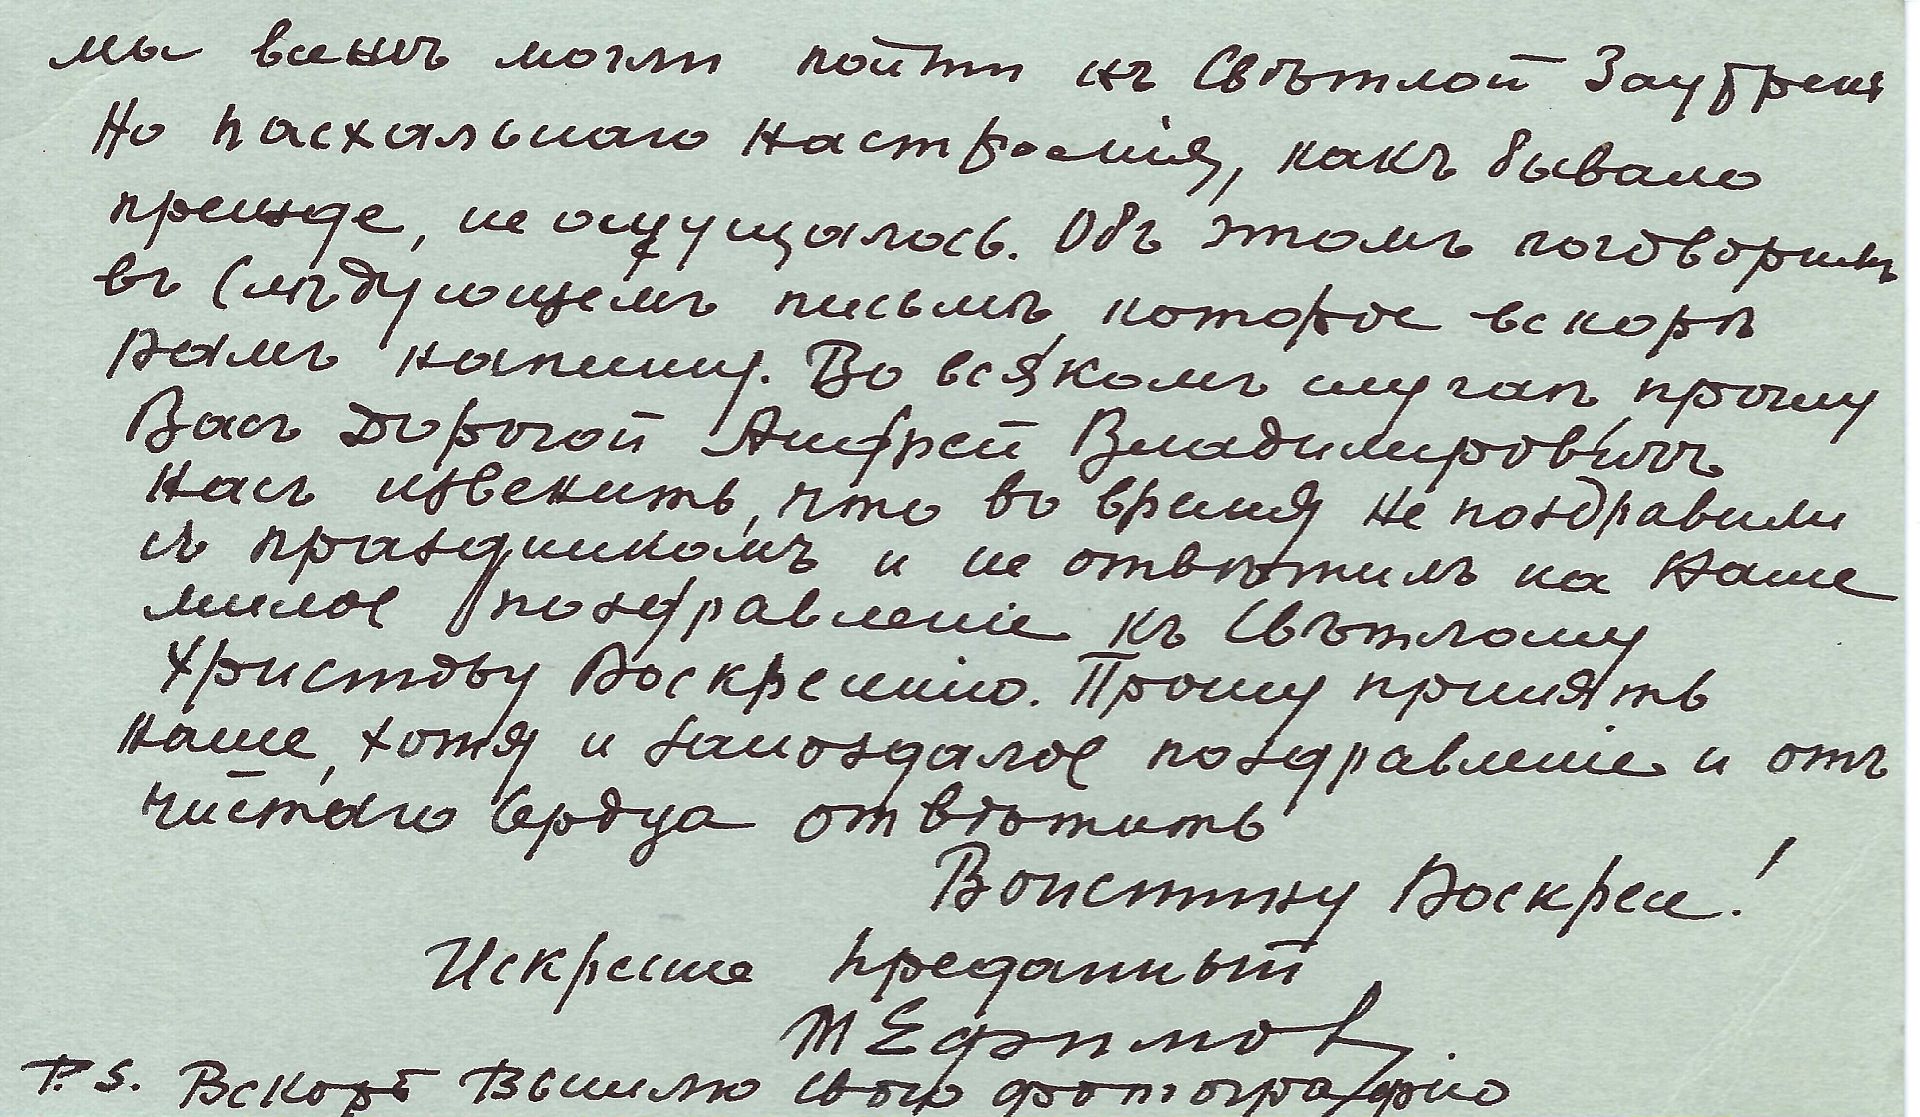 мы всемъ могли пойти къ Свѣтлой Заутрени
Но Пасхальнаго настроенія, какъ бывало
прежде, не ощущалось. Объ этомъ поговоримъ
въ Слѣдующемъ письмѣ, которое вскорѣ
Вамъ напишу. Во всякомъ случаѣ, прошу
Васъ Дорогой Андрей Владимировичъ
насъ извенить, что во время не поздравили
съ праздникомъ и не отвѣтилъ на Ваше
милое поздравленіе къ Свѣтлому
Христову Воскресенію. Прошу принять
наше, хотя и запоздалое поздравленіе и отъ
чистаго Сердца отвѣтить
Воистину Воскресе!
Искренне Преданный
Т Ефимовъ.
P. S. Вскорѣ Вышлю свою фотографію